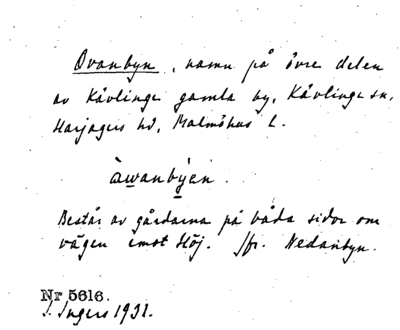 Ovanbyn, namn på övre delen
av Kävlinge gamla by, Kävlinge sn,
Harjagers hd, Malmöhus L.
àwanbýen.
Består av gårdarna på båda sidor om
vägen emot Höj. Jfr. Nedanbyn.
Nr 5616.
I. Ingers 1931.